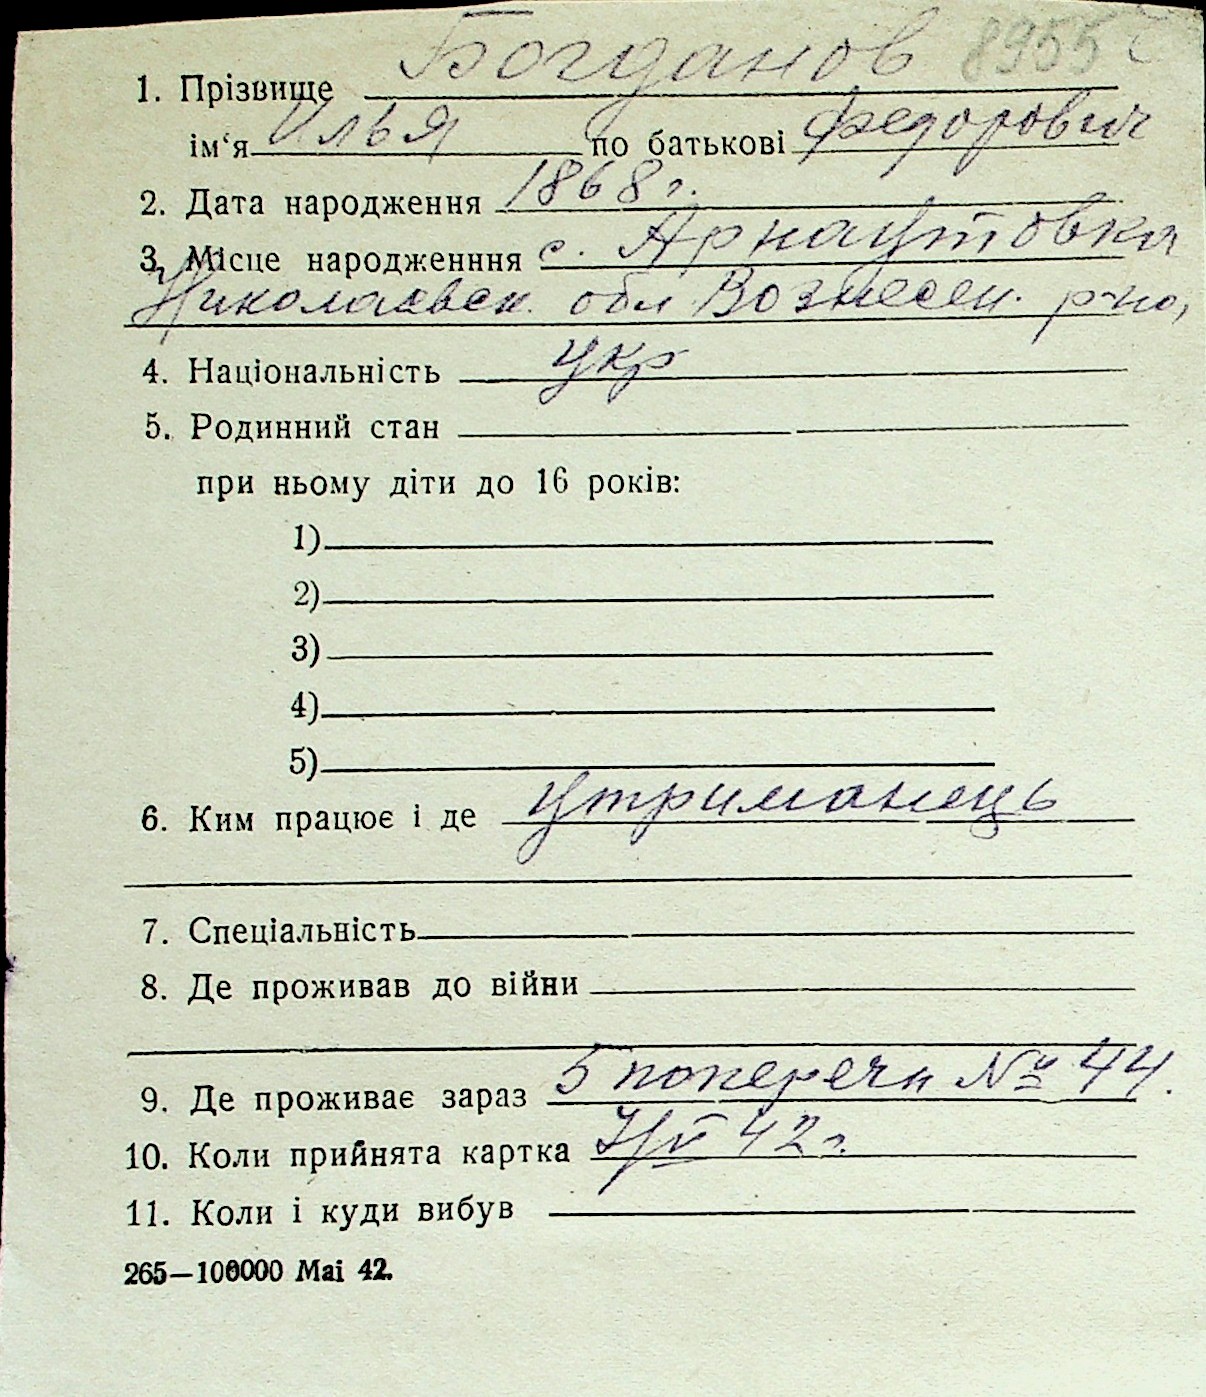 Богданов 8955
1. Прізвище
ім‘я Илья по батькові Федорович
2. Дата народження 1868 г.
3. Місце народженння с. Арнаутовка
Николаевск. обл Вознесен. р-на,
4. Національність укр
5. Родинний стан
при ньому діти до 16 років:
1)
2)
3)
4)
5)
6. Ким працює і де утриманець
7. Спеціальність
8. Де проживав до війни
9. Де проживає зараз 5 поперечн № 44.
10. Коли прийнята картка 42 г.
11. Коли і куди вибув
265—100000 Mai 42.